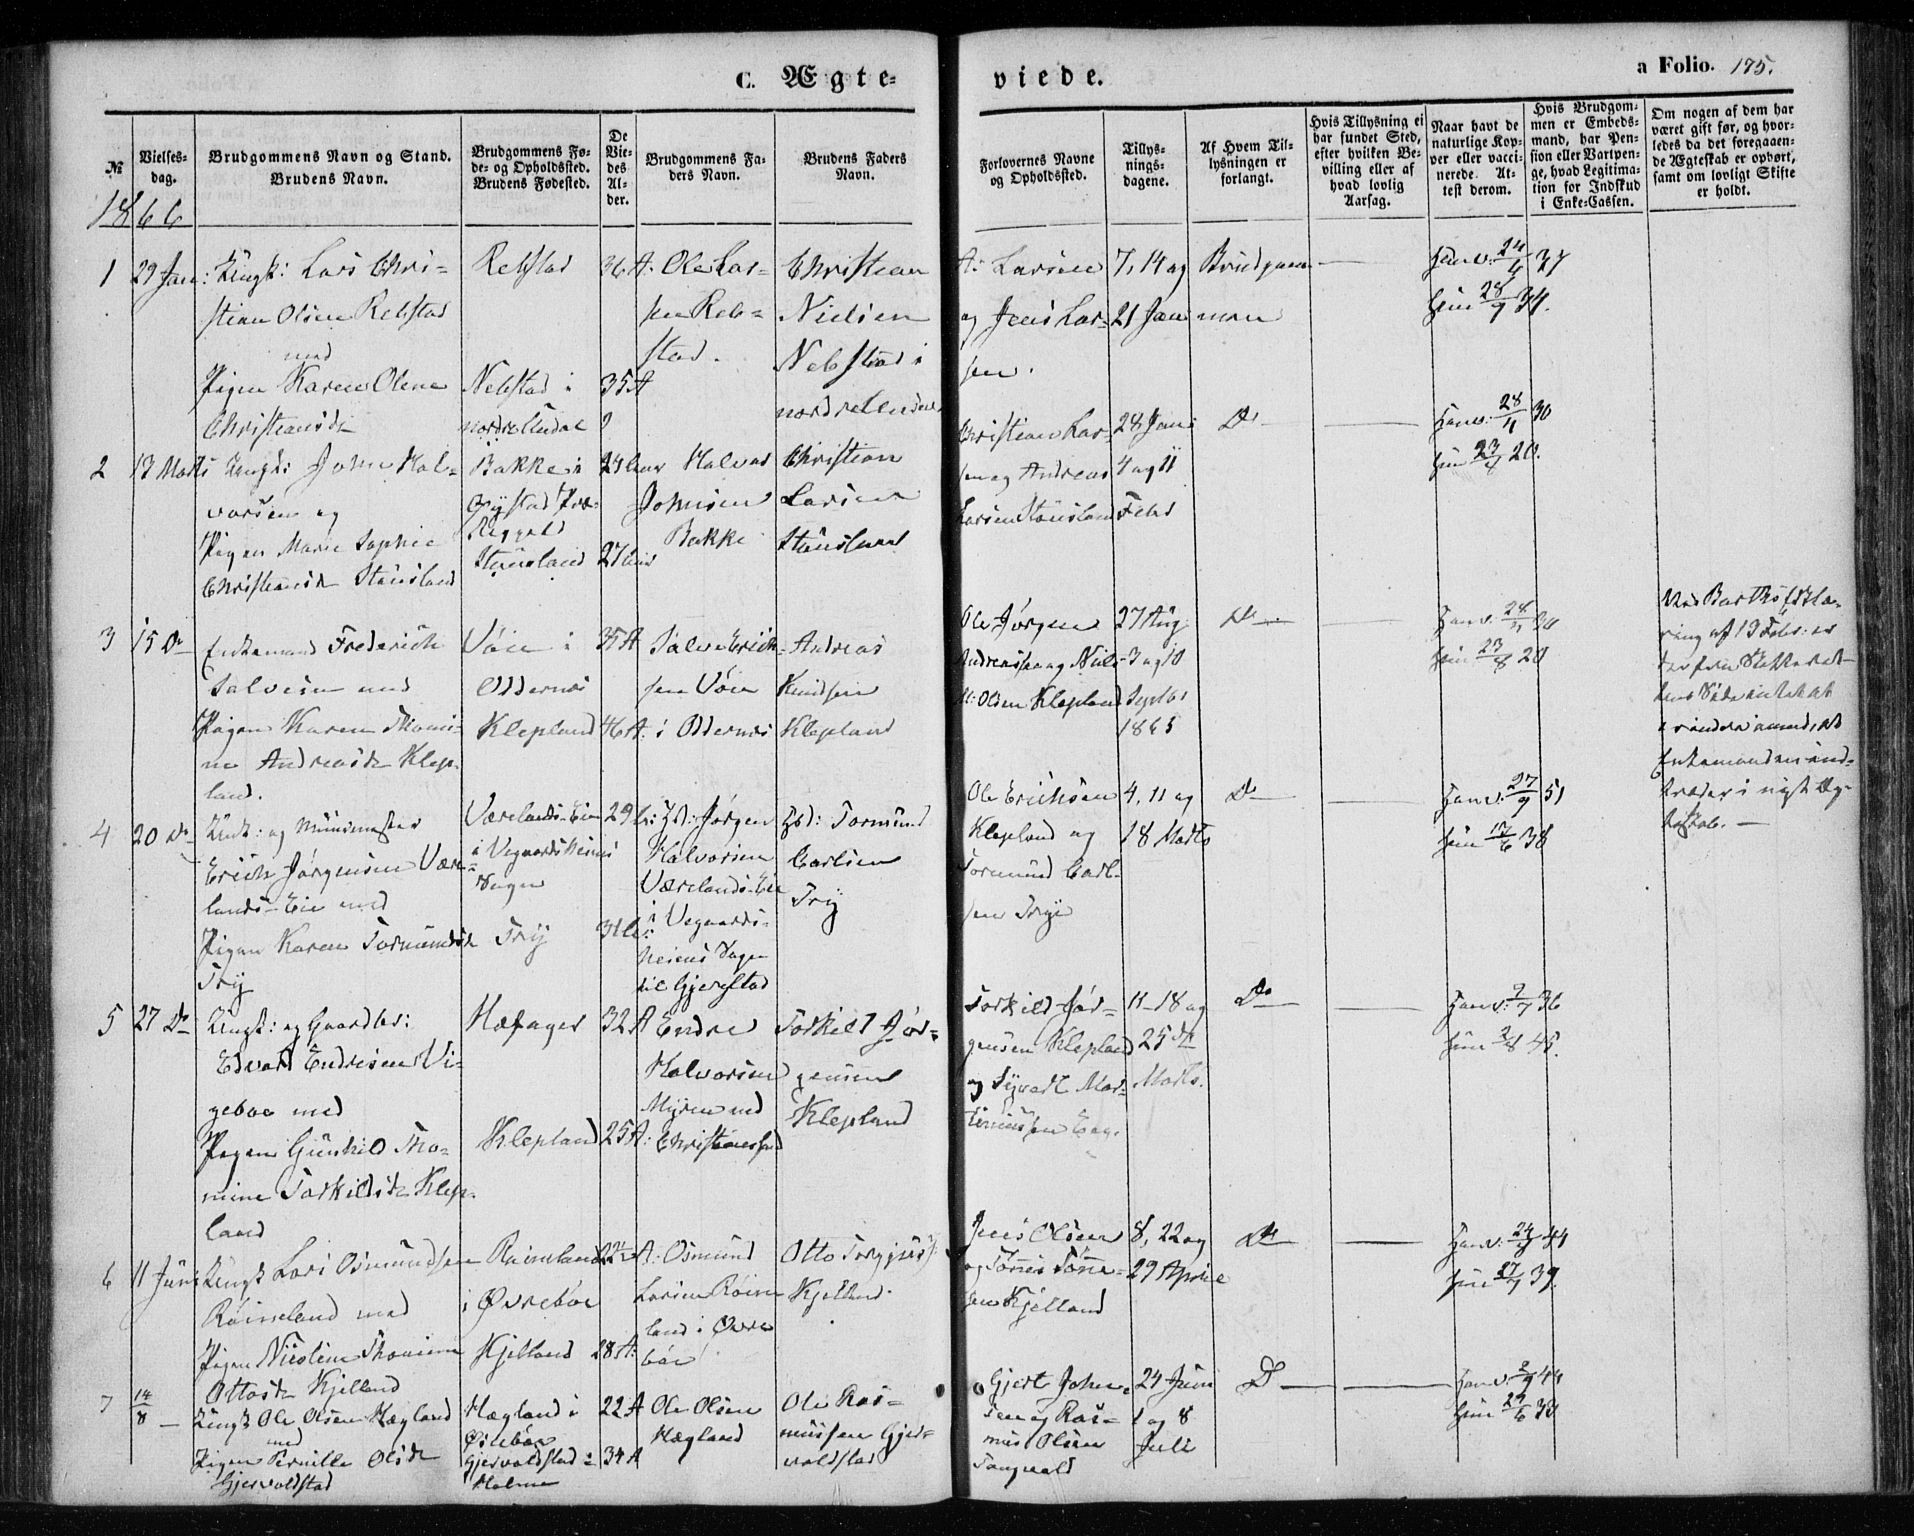 C. Ægte-
viede.
a Folio. 175.
№
Vielses-
dag.
Brudgommens Navn og Stand.
Brudens Navn.
Brudgommens Fø-
de- og Opholdssted.
Brudens Fødested.
De
Vie-
des
Al-
der.
Brudgommens Fa-
ders Navn.
Brudens Faders
Navn.
Forlovernes Navne
og Opholdssted.
Tillys-
nings-
dagene.
Af Hvem Til-
lysningen er
forlangt.
Hvis Tillysning ei
har fundet Sted,
efter hvilken Be-
villing eller af
hvad lovlig
Aarsag.
Naar havt de
naturlige Kop-
per eller vacci-
nerede. At-
test derom.
Hvis Brudgom-
men er Embeds-
mand, har Pen-
sion eller Vartpen-
ge, hvad Legitima-
tion for Indskud
i Enke-Cassen.
Om nogen af dem har
været gift før, og hvor-
ledes da det foregaaen-
de Ægteskab er ophørt,
samt om lovligt Skifte
er holdt.
1866
1
29 Jan:
Ungk: Lars Chri-
stian Olsen Rebstad
med
Pigen Karen Olene
Christiansdr
Rebstad
Nebstad i
36 A:
35 A
Ole Lar-
sen Reb-
stad.
Christian
Nielsen
Nebstad i
A: Larsen
og Jens Lar-
sen.
7, 14 og
21 Jan
Brudgom-
men
Han v: 24/4 37
Hun 28/9 34.
2
13 Marts
Ungk: John Hal-
vorsen og
Pigen Marie Sophie
Christiansdr Stausland
Bakke i
Stausland
27
Halvor
Johnsen
Bakke
Christian
Larsen
Stausland
Christian Lar-
sen og Andreas
Larsen Stausland
28 Jan:
4 og 11
Febr
Do
Han v: 28/4 30
Hun 23/8 20.
3
15 Do
Enkemand Frederich
Salvesen med
Pigen Karen Thomi-
ne Andreasdr Klep-
land.
Vöie i
Oddernes
Klepland
35 A
46 A:
Salve Erich-
sen Vöie
i Oddernes
Andreas
Knudsen
Klepland
Ole Jörgen
Andreassen og Niels
M: Olsen Klepland
27 Aug
3 og 10
Septbr
1865
Do
Hun 23/8 20
ring af 13 Febr: er
Enkemanden ind-
træder i nyt Æg-
teskab. —
4
20 Do
Ungk: og Muurmester
Erich Jörgensen Være-
lands-Eie med
Pigen Karen Tormundsdr
Try
Værelands-Eie
i Vegaardsheiens
Sogn
Try
29
31
Jörgen
Halvorsen
Værelands-Eie
i Vegaards-
heiens Sogn
til Gjerestad
Tormund
Carlsen
Try
Ole Erichsen
Klepland og
Tormund Carl-
sen Trye
4, 11 og
18 Marts
Do
Han v: 27/9 51
Hun 17/6 38
5
27 Do
Ungk: og Gaardbr:
Edvard Endresen Vi-
geboe med
Pigen Gunhild Tho-
mine Torkildsdr Klep-
land
Hæfager
Klepland
32 A
25 A:
Endre
Halvorsen
Myren ved
Christianssand
Torkild Jör-
gensen
Klepland
Torkild Jör-
gensen Klepland
og Syvert Mor-
11- 18 og
25de
Marts.
Do
Han v: 7/7 36
Hun 2/8 45.
6
11 Juni
Ungk Lars Osmundsen
Röineland med
Pigen Nicoline Thomine
Ottosdr Kjelland
Röineland
i Øvrebøe
Kjelland
22½ A:
28 A:
Osmund
Larsen Röine
land i Øvre
böe
Otto Torgjus:
Kjelland
Jens Olsen
og Tönnes Tönne-
sen Kjelland
8, 22 og
29 Aprile
Do
Han v: 24/9 44
Hun 27/7 39.
7
14/8
Ungk Ole Olsen Hægland
med
Pigen Pernille Olsdr
Gjervoldstad
Hægland i
Øvrebøe
Gjervoldstad i
Holme
22 A
34 A
Ole Olsen
Hægland
Ole Ras-
mussen Gjer-
voldstad
Gjert John-
sen og Ras-
mus Olsen
Tangvald
24 Juni
1 og 8
Juli
Do
Han v: 2/9 44
Hun 29/6 33